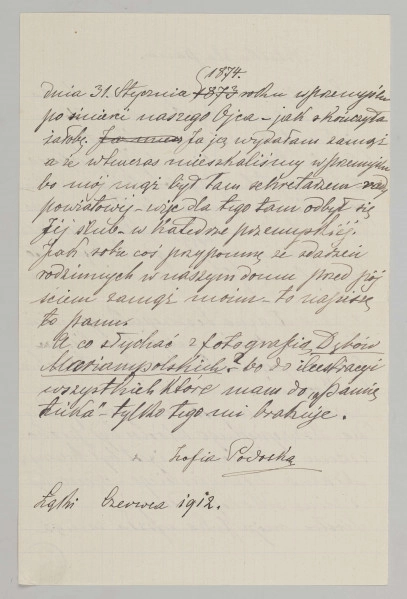 1874.
dnia 31. Stycznia 1873 roku w przemyślu
po śmierci naszego Ojca – jak skończyła
żałobę. Ja ją wydałam zamąż
a że wówczas mieszkaliśmy w przemyślu
bo mój mąż był tam sekretarzem rady
powiatowij – więc dla tego tam odbył się
Jij ślub – w katedrze przemyskiej.
Jak sobie coś przypomnę ze zdarzeń
rodzinnych w naszym domu przed pój
ściem zamąż moim – to napiszę
to panu.
A co słychać z fotografią Dębów
Maryampolskich? bo do ilustracyi
wszystkich które mam do "Pamię
tnika" – tylko tego mi brakuje.
Zofia Podoska
Czerwca 1912.